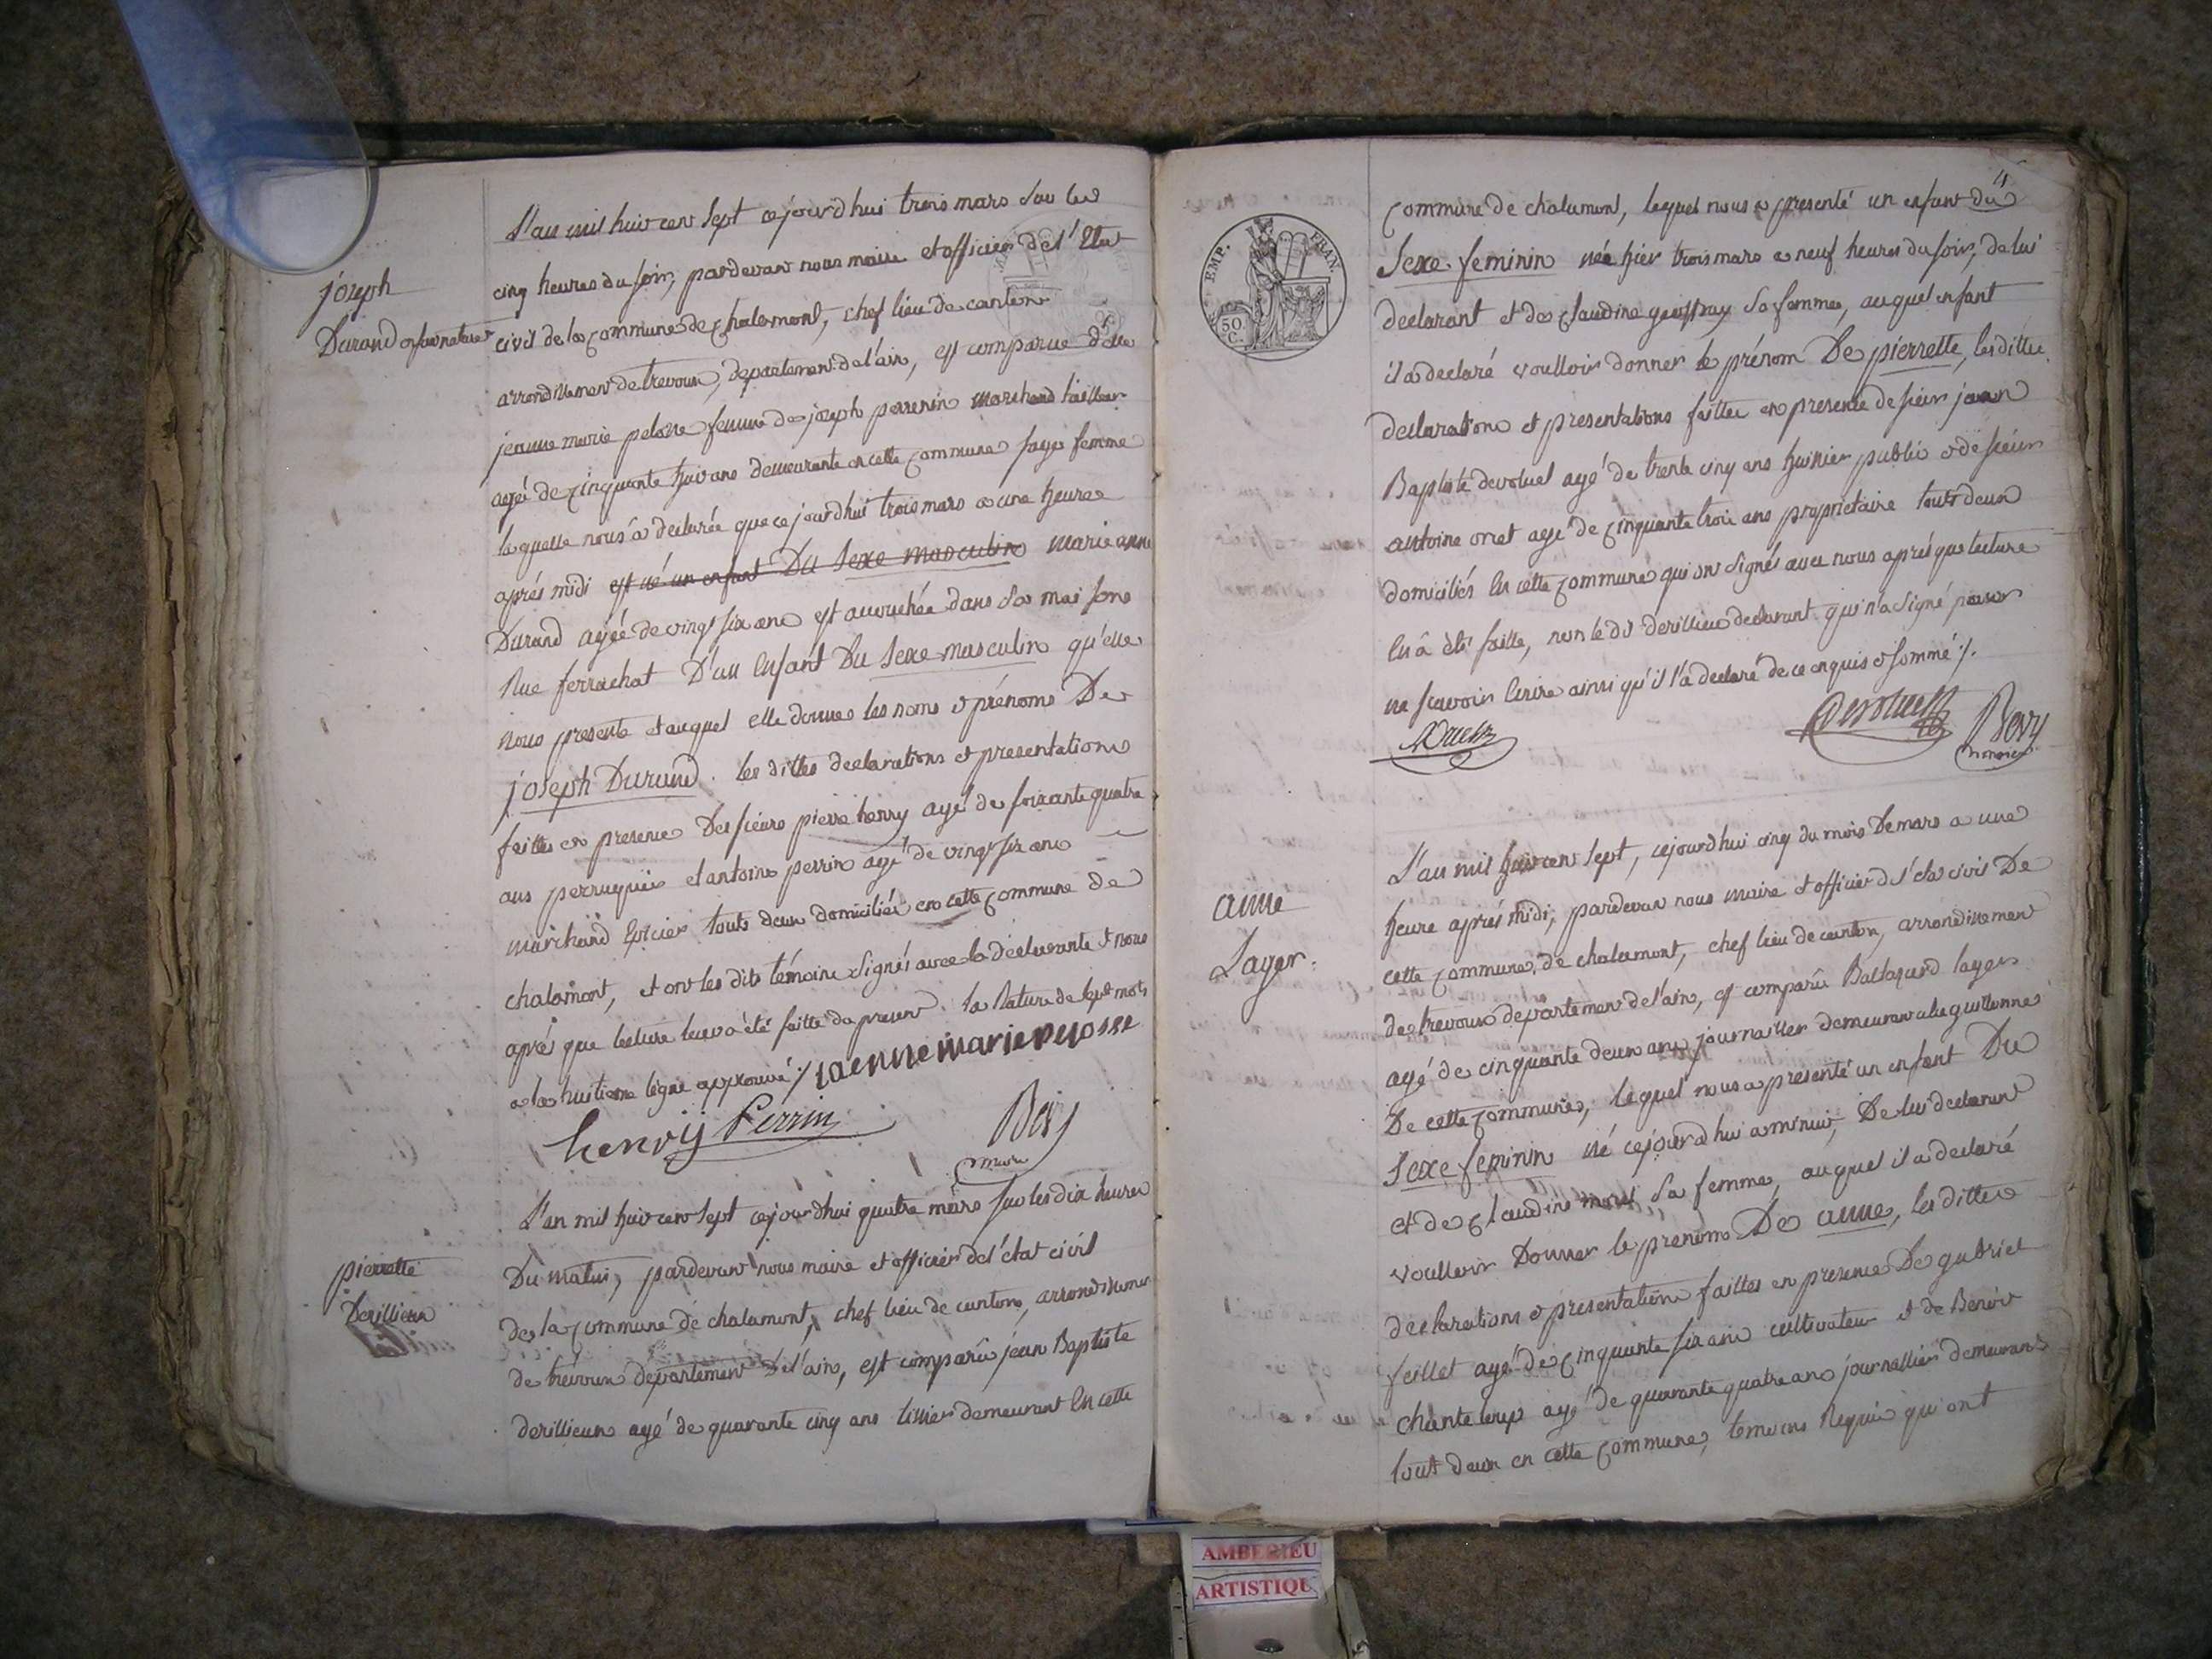 joseph
Durand enfant naturel
L'an mil huit cent sept cejourd'hui trois mars sur les
cinq heures du soir, pardevant nous maire et officier de l'Etat
civil de la commune de chalamont, chef lieu de canton
arrondissement de trevoux, departement de l'ain, est comparue d.lle
jeanne marie pelosse femme de joseph perrenin marchand tailleur
agée de cinquante huit ans demeurante en cette commune sage femme
laquelle nous a declarée que ce jourd'hui trois mars a une heure
aprés midi est né un enfant Du Sexe masculin marie anne
Durand agée de vingt six ans est accouchée dans sa maison
Rue ferrachat D'un Enfant Du Sexe masculin qu'elle
nous presente et auquel elle donne les noms et prénoms De
joseph Durand. les dittes declarations et presentations
faittes en presence Des sieurs pierre henry agé de soixante quatre
ans perruquier et antoine perrin agé de vingt six ans
marchand Epicier touts deux domiciliés en cette commune de
chalamont, et ont les dits témoins signés avec la déclarante et nous
aprés que lecture leur a été faitte du present. la Rature de sept mots
a la huitieme ligne approuvé ./. jaenne marie pelosse
henry Perrin
Bery
maire
pierrette
Derillieux
L'an mil huit cent sept cejourd'hui quatre mars sur les dix heures
Du matin, pardevant nous maire et officier de l'état civil
de la commune de chalamont, chef lieu de canton, arrondissement
de trévoux departement De l'ain, est comparû jean Baptiste
derillieux agé de quarante cinq ans tissier demeurant En cette
4
EMP. FRAN.
50
C.
commune de chalamont, lequel nous a presenté un enfant du
Sexe feminin née hier trois mars a neuf heures du soir, de lui
declarant et de claudine geoffray sa femme, auquel enfant
il a declaré voulloir donner le prénom De pierrette, les dittes
declaration et presentations faittes en presence de sieur jean
Baptiste devoluet agé de trente cinq ans huissier public et de sieur
antoine orset agé de cinquante trois ans proprietaire touts deux
domiciliés En cette commune qui ont signés avec nous aprés que lecture
En â été faitte, non le dit derillieux declarant qui n'a signé pour
ne scavoir Ecrire ainsi qu'il l'a declaré de ce enquis et sommé ./.
Devoluet
Bery
anne
Layer.
L'an mil huit cent sept, cejourd'hui cinq du mois De mars a une
heure aprés midi, pardevant nous maire et officier de l'état civil De
cette commune de chalamont, chef lieu de canton, arrondissement
de trevoux departement de l'ain, est comparû Baltazard layer
agé de cinquante deux ans journallier demeurant a la guillonne
De cette commune, lequel nous a presenté un enfant Du
Sexe feminin né cejourd'hui a minuit, De lui declarant
et de claudine morel sa femme, auquel il a declaré
voulloir Donner le prenom De anne, les dittes
declarations et presentation faittes en presence De gabriel
feillet agé de cinquante six ans cultivateur et de Benoit
chanteloup agé de quarante quatre ans journallier demeurants
touts deux en cette commune, temoins Requis qui ont
AMBERIEU
ARTISTIQU